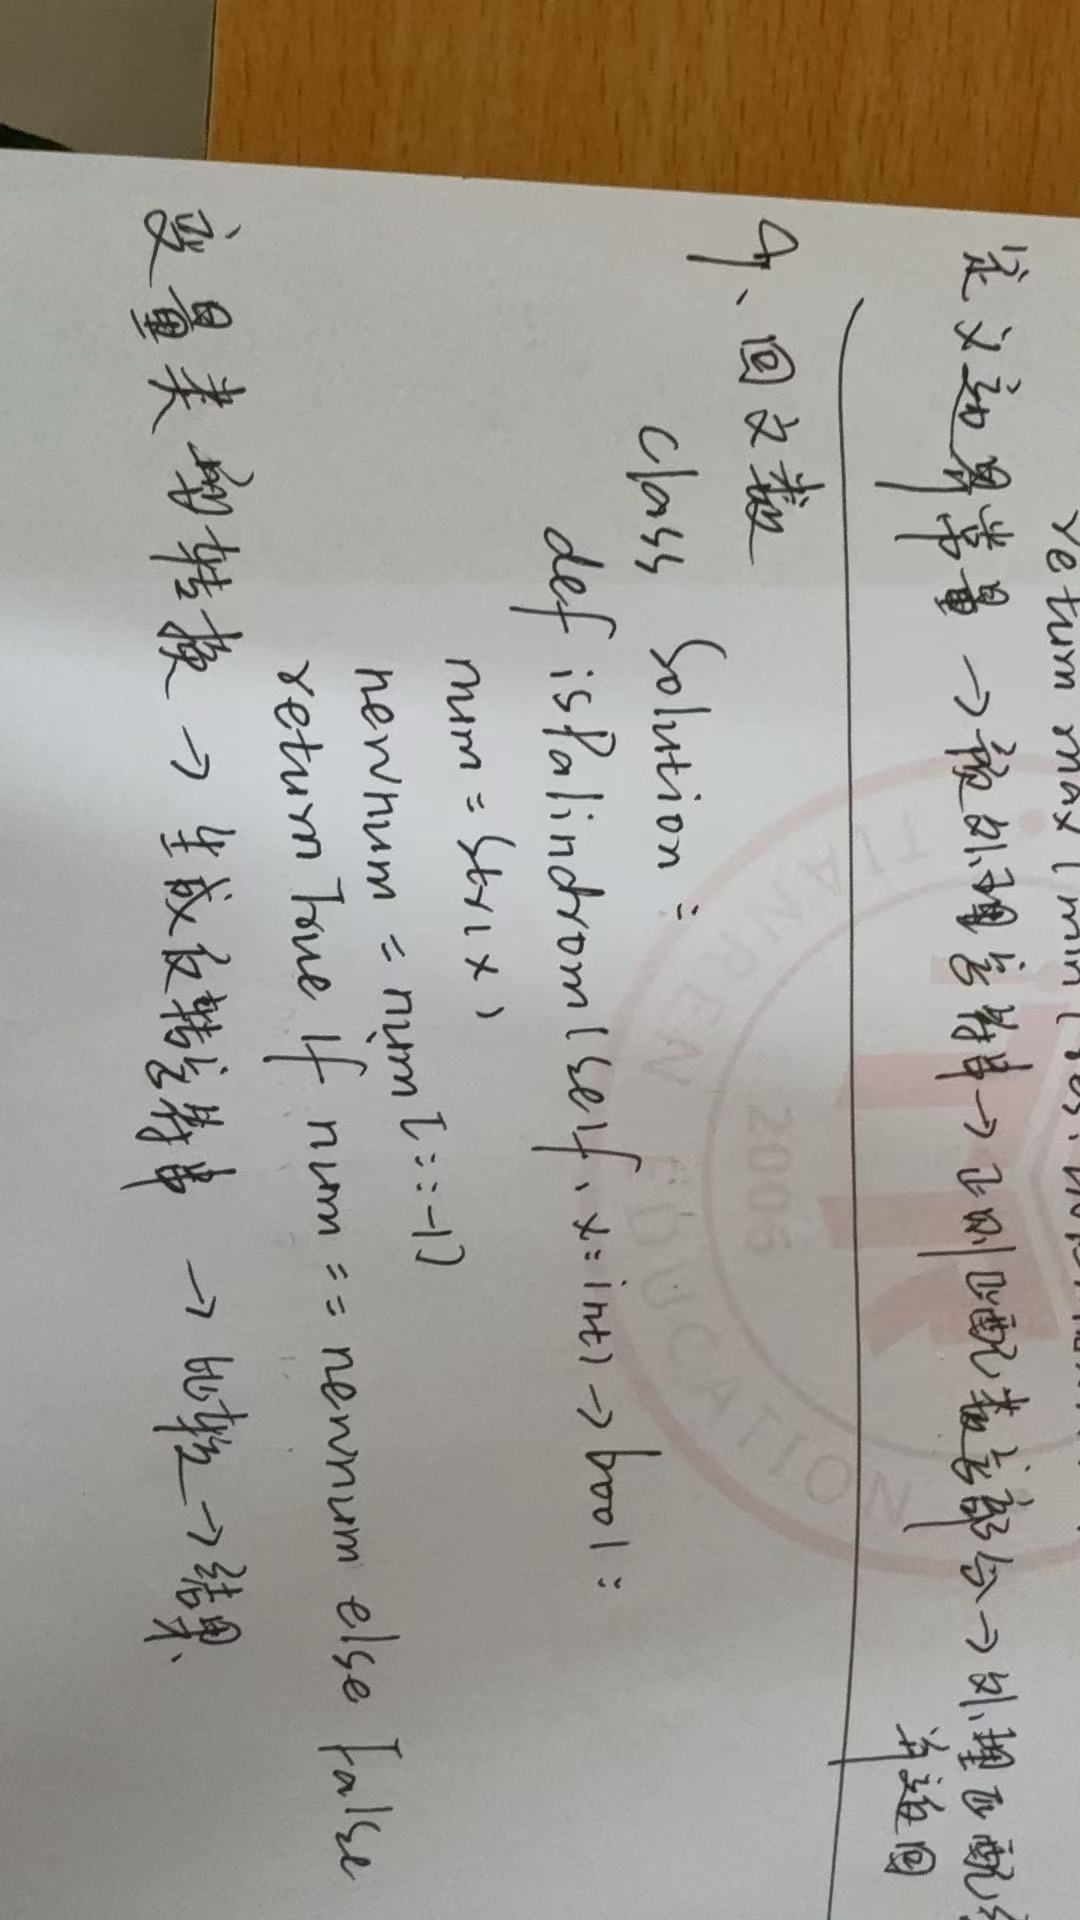 return max(min(res,
定义边界常量 → 预处理字符串 → 正则匹配数字部分 → 处理匹配
并返回
4、回文数
class Solution:
def isPalindrom(self, x:int) -> bool:
num = str(x)
newnum = num[::-1]
return True if num == newnum else False
变量类型转换 → 生成反转字符串 → 比较 → 结果
TIANREN EDUCATION
2006